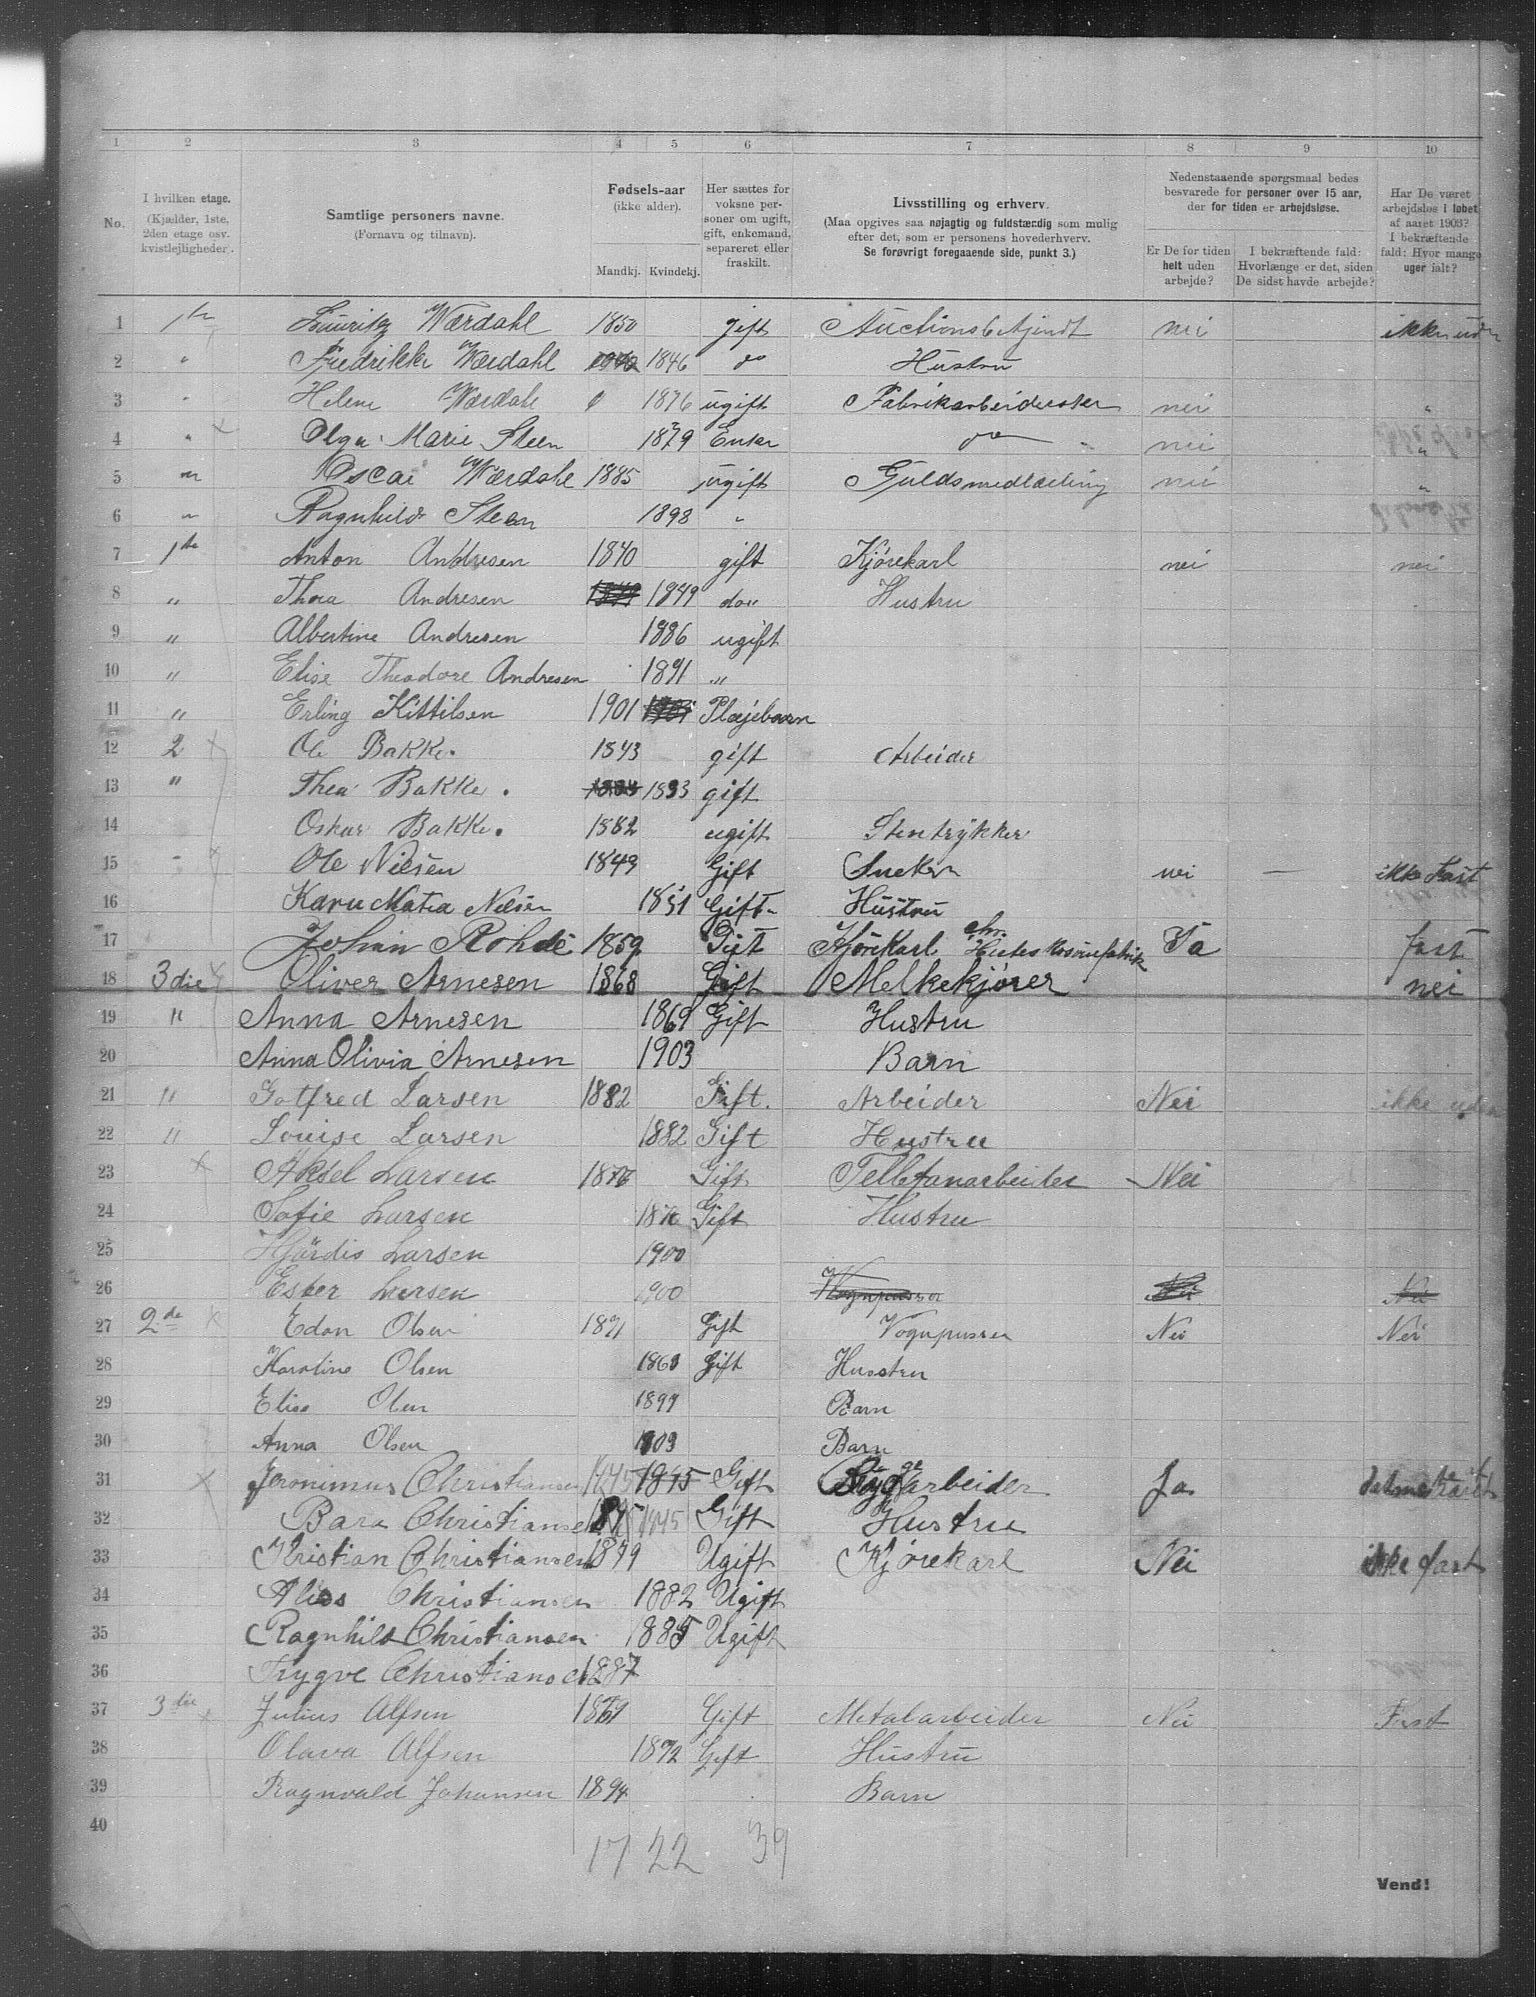 1 2 3 4 5 6 7 8 9 10
No.
I hvilken etage. (Kjælder, 1ste, 2den etage osv. kvistlejligheder.
Samtlige personers navne. (Fornavn og tilnavn).
Fødsels-aar (ikke alder). Mandkj. Kvindekj.
Her sættes for voksne personer om ugift, gift, enkemand, separeret eller fraskilt.
Livsstilling og erhverv. (Maa opgives saa nøjagtig og fuldstændig som mulig efter det, som er personens hovederhverv. Se forøvrigt foregaaende side, punkt 3.)
Nedenstaaende spørgsmaal bedes besvarede for personer over 15 aar, der for tiden er arbejdsløse.
Er De for tiden helt uden arbejde?
I bekræftende fald: Hvorlænge er det, siden De sidst havde arbejde?
Har De været arbejdsløs i løbet af aaret 1903? I bekræftende fald: Hvor mange uger ialt?
1 1te Lauritz Wærdahl 1850 gift nei
2 " Fredrikke Wærdahl 1846 do Hustru
3 " Helene Wærdahl 1876 ugift Fabrikarbeiderske nei "
4 " Olga Marie Steen 1879 Enke do nei "
5 " Oscar Wærdahl 1885 ugift Guldsmedlærling nei "
6 " Ragnhild Steen 1898 "
7 1te Anton Andresen 1840 gift Kjørekarl nei nei
8 " Thea Andresen 1849 do" Hustru
9 " Albertine Andresen 1886 ugift
10 " Elise Theodore Andresen 1891 "
11 " Erling Kittilsen 1901 1901 Plejebarn
12 2 Ole Bakke. 1843 gift Arbeider
13 " Thea Bakke. 1833 gift
14 Oskar Bakke. 1882 ugift Stentrykker
15 - Ole Nilsen 1849 Gift Sneker nei — ikke Fast
16 Nilsen 1851 Gift Hustru
17 Johan Rohde 1859 Gift Kjørekarl Ja fast
18 3die Oliver Arnesen 1868 Gift Melkekjører nei
19 " Anna Arnesen 1869 Gift Hustru
20 Anna Olivia Arnesen 1903 Barn
21 " Gotfred Larsen 1882 Gift. Arbeider Nei ikke uden
22 " Louise Larsen 1882 Gift Hustru
23 Aksel Larsen 1876 Gift Nei
24 Sofie Larsen 1876 Gift Hustru
25 Hjördis Larsen 1900
26 Ester Larsen 1900 Vognpusser Nei Nei
27 2de Edon Olsen 1871 Gift Vognpusser Nei Nei
28 Karoline Olsen 1863 Gift Husstru
29 Elise Olsen 1899 Barn
30 Anna Olsen 1903 Barn
31 Jeronimus Christiansen 1845 1845 Gift Bryggearbeider Ja
32 Bara Christiansen 1845 1845 Gift Hustru
33 Kristian Christiansen 1879 Ugift Kjørekarl Nei ikke fast
34 Christiansen 1882 Ugift
35 Ragnhild Christiansen 1885 Ugift
36 Trygve Christiansen 1887
37 3die Julius Alfsen 1869 Gift Metalarbeider Nei Fast
38 Olava Alfsen 1872 Gift Hustru
39 Ragnvald Johansen 1894 Barn
40
17 22 39
Vend!